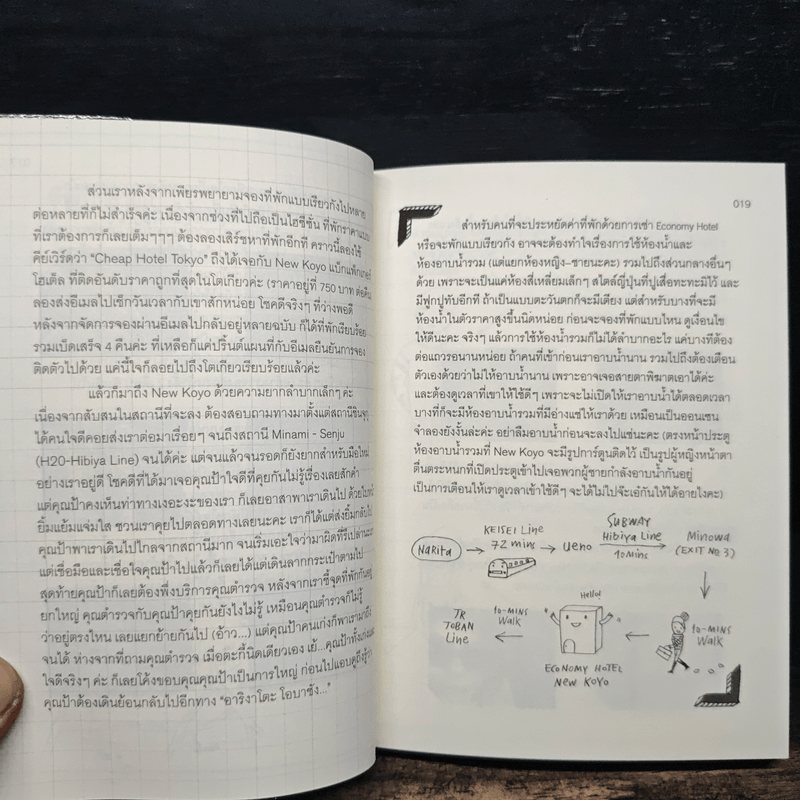 ส่วนเราหลังจากเพียรพยายามจองที่พักแบบเรียวกังไปหลาย
ต่อหลายที่ก็ไม่สำเร็จค่ะ เนื่องจากช่วงที่ไปถือเป็นไฮซีซั่น ที่พักราคาแบบ
ที่เราต้องการก็เลยเต็มๆๆๆ ต้องลองเสิร์ชหาที่พักอีกที คราวนี้ลองใช้
คีย์เวิร์ดว่า “Cheap Hotel Tokyo” ถึงได้เจอกับ New Koyo แบ็กแพ็กเกอร์
โฮเต็ล ที่ติดอันดับราคาถูกที่สุดในโตเกียวค่ะ (ราคาอยู่ที่ 750 บาท ต่อคืน
ลองส่งอีเมลไปเช็กวันเวลากับเขาสักหน่อย โชคดีจริงๆ ที่ว่างพอดี
หลังจากจัดการจองผ่านอีเมลไปกลับอยู่หลายฉบับ ก็ได้ที่พักเรียบร้อย
รวมเบ็ดเสร็จ 4 คืนค่ะ ที่เหลือก็แค่ปริ๊นต์แผนที่กับอีเมลยืนยันการจอง
ติดตัวไปด้วย แค่นี้ใจก็ลอยไปถึงโตเกียวเรียบร้อยแล้วค่ะ
แล้วก็มาถึง New Koyo ด้วยความยากลำบากเล็กๆ ค่ะ
เนื่องจากสับสนในสถานีที่จะลง ต้องสอบถามทางมาตั้งแต่สถานีชินจูกุ
ได้คนใจดีคอยส่งเราต่อมาเรื่อยๆ จนถึงสถานี Minami - Senju
(H20-Hibiya Line) จนได้ค่ะ แต่จนแล้วจนรอดก็ยังยากสำหรับมือใหม่
อย่างเราอยู่ดี โชคดีที่ได้มาเจอคุณป้าใจดีที่คุยกันไม่รู้เรื่องเลยสักคำ
แต่คุณป้าคงเห็นท่าทางเงอะงะของเรา ก็เลยอาสาพาเราเดินไป ด้วยใบหน้า
ยิ้มแย้มแจ่มใส ชวนเราคุยไปตลอดทางเลยนะคะ เราก็ได้แต่ส่งยิ้มกลับไป
คุณป้าพาเราเดินไปไกลจากสถานีมาก จนเริ่มเอะใจว่ามาผิดที่รึเปล่านะคะ
แต่เชื่อมือและเชื่อใจคุณป้าไปแล้วก็เลยได้แต่เดินลากกระเป๋าตามไป
สุดท้ายคุณป้าก็เลยต้องพึ่งบริการคุณตำรวจ หลังจากเราชี้จุดที่พักกันอยู่
ยกใหญ่ คุณตำรวจกับคุณป้าคุยกันยังไงไม่รู้ เหมือนคุณตำรวจก็ไม่รู้
ว่าอยู่ตรงไหน เลยแยกย้ายกันไป (อ้าว...) แต่คุณป้าคนเก่งก็พาเรามาถึง
จนได้ ห่างจากที่ถามคุณตำรวจ เมื่อตะกี้นิดเดียวเอง เย้...คุณป้าทั้งเก่งและ
ใจดีจริงๆ ค่ะ ก็เลยโค้งขอบคุณคุณป้าเป็นการใหญ่ ก่อนไปแอบดูถึงรู้ว่า
คุณป้าต้องเดินย้อนกลับไปอีกทาง “อาริงาโตะ โอบาซัง...”
019
สำหรับคนที่จะประหยัดค่าที่พักด้วยการเช่า Economy Hotel
หรือจะพักแบบเรียวกัง อาจจะต้องทำใจเรื่องการใช้ห้องน้ำและ
ห้องอาบน้ำรวม (แต่แยกห้องหญิง-ชายนะคะ) รวมไปถึงส่วนกลางอื่นๆ
ด้วย เพราะจะเป็นแค่ห้องสี่เหลี่ยมเล็กๆ สไตล์ญี่ปุ่นที่ปูเสื่อทะทะมิไว้ และ
มีฟูกปูทับอีกที ถ้าเป็นแบบตะวันตกก็จะมีเตียง แต่สำหรับบางที่จะมี
ห้องน้ำในตัวราคาสูงขึ้นนิดหน่อย ก่อนจะจองที่พักแบบไหน ดูเงื่อนไข
ให้ดีนะคะ จริงๆ แล้วการใช้ห้องน้ำรวมก็ไม่ได้ลำบากอะไร แค่บางทีต้อง
ต่อแถวรอนานหน่อย ถ้าคนที่เข้าก่อนเราอาบน้ำนาน รวมไปถึงต้องเตือน
ตัวเองด้วยว่าไม่ให้อาบน้ำนาน เพราะอาจเจอสายตาพิฆาตเอาได้ค่ะ
และต้องดูเวลาที่เขาให้ใช้ดีๆ เพราะจะไม่เปิดให้เราอาบน้ำได้ตลอดเวลา
บางที่ก็จะมีห้องอาบน้ำรวมที่มีอ่างแช่ให้เราด้วย เหมือนเป็นออนเซน
จำลองยังงั้นล่ะค่ะ อย่าลืมอาบน้ำก่อนจะลงไปแช่นะคะ (ตรงหน้าประตู
ห้องอาบน้ำรวมที่ New Koyo จะมีรูปการ์ตูนติดไว้ เป็นรูปผู้หญิงหน้าตา
ตื่นตระหนกที่เปิดประตูเข้าไปเจอพวกผู้ชายกำลังอาบน้ำกันอยู่
เป็นการเตือนให้เราดูเวลาเข้าใช้ดีๆ จะได้ไม่ไปจ๊ะเอ๋กันให้ได้อายไงคะ)
Narita
KEISEI Line
72 mins
ueno
SUBWAY
Hibiya Line
10mins
Minowa
(EXIT No 3)
10-MINS
Walk
Hello!
ECONOMY HOTEL
NEW KOYO
10-MINS
Walk
JR
JOBAN
Line